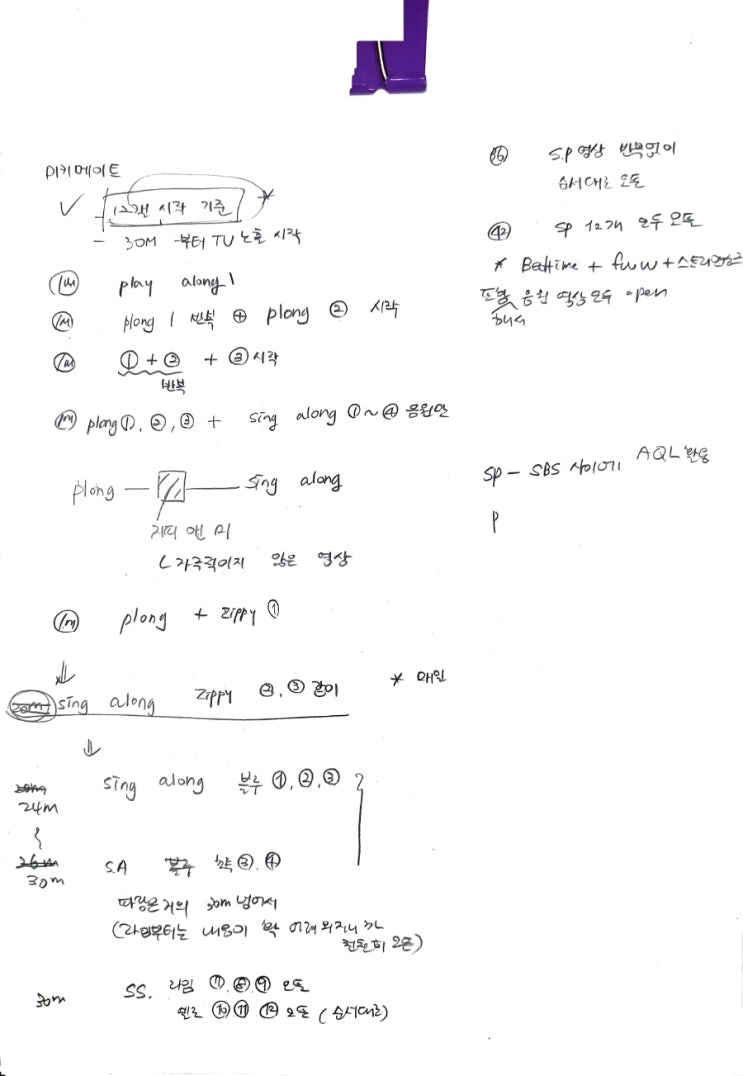 미키메이트
✓ - 12개월 시작 기준 *
- 30M 부터 TV 노출 시작
1M play along 1
1M plong 1 반복 ⊕ plong ② 시작
1M ① + ② + ③ 시작
반복
1M plong ①, ②, ③ + sing along ①~④ 음원만
plong — sing along
지피 앤 미
ㄴ 자극적이지 않은 영상
1M plong + zippy ①
↓
20m sing along zippy ②, ③ 같이 * 메인
↓
24M sing along 블루 ①, ②, ③
30m S.A ③, ④
따라은 거의 30m 넘어서
(라임부터는 내용이 확 어려워지니까
천천히 오픈)
30m SS. 라임 ⑦, ⑧, ⑨ 오픈
옐로 ⑩ ⑪ ⑫ 오픈 (순서대로)
36 S.P 영상 반복없이
순서대로 오픈
42 SP 12개 모두 오픈
* Bedtime + fww +
포함해서 음원 영상 모두 open
SP - SBS 사이에 AQL 활용
P